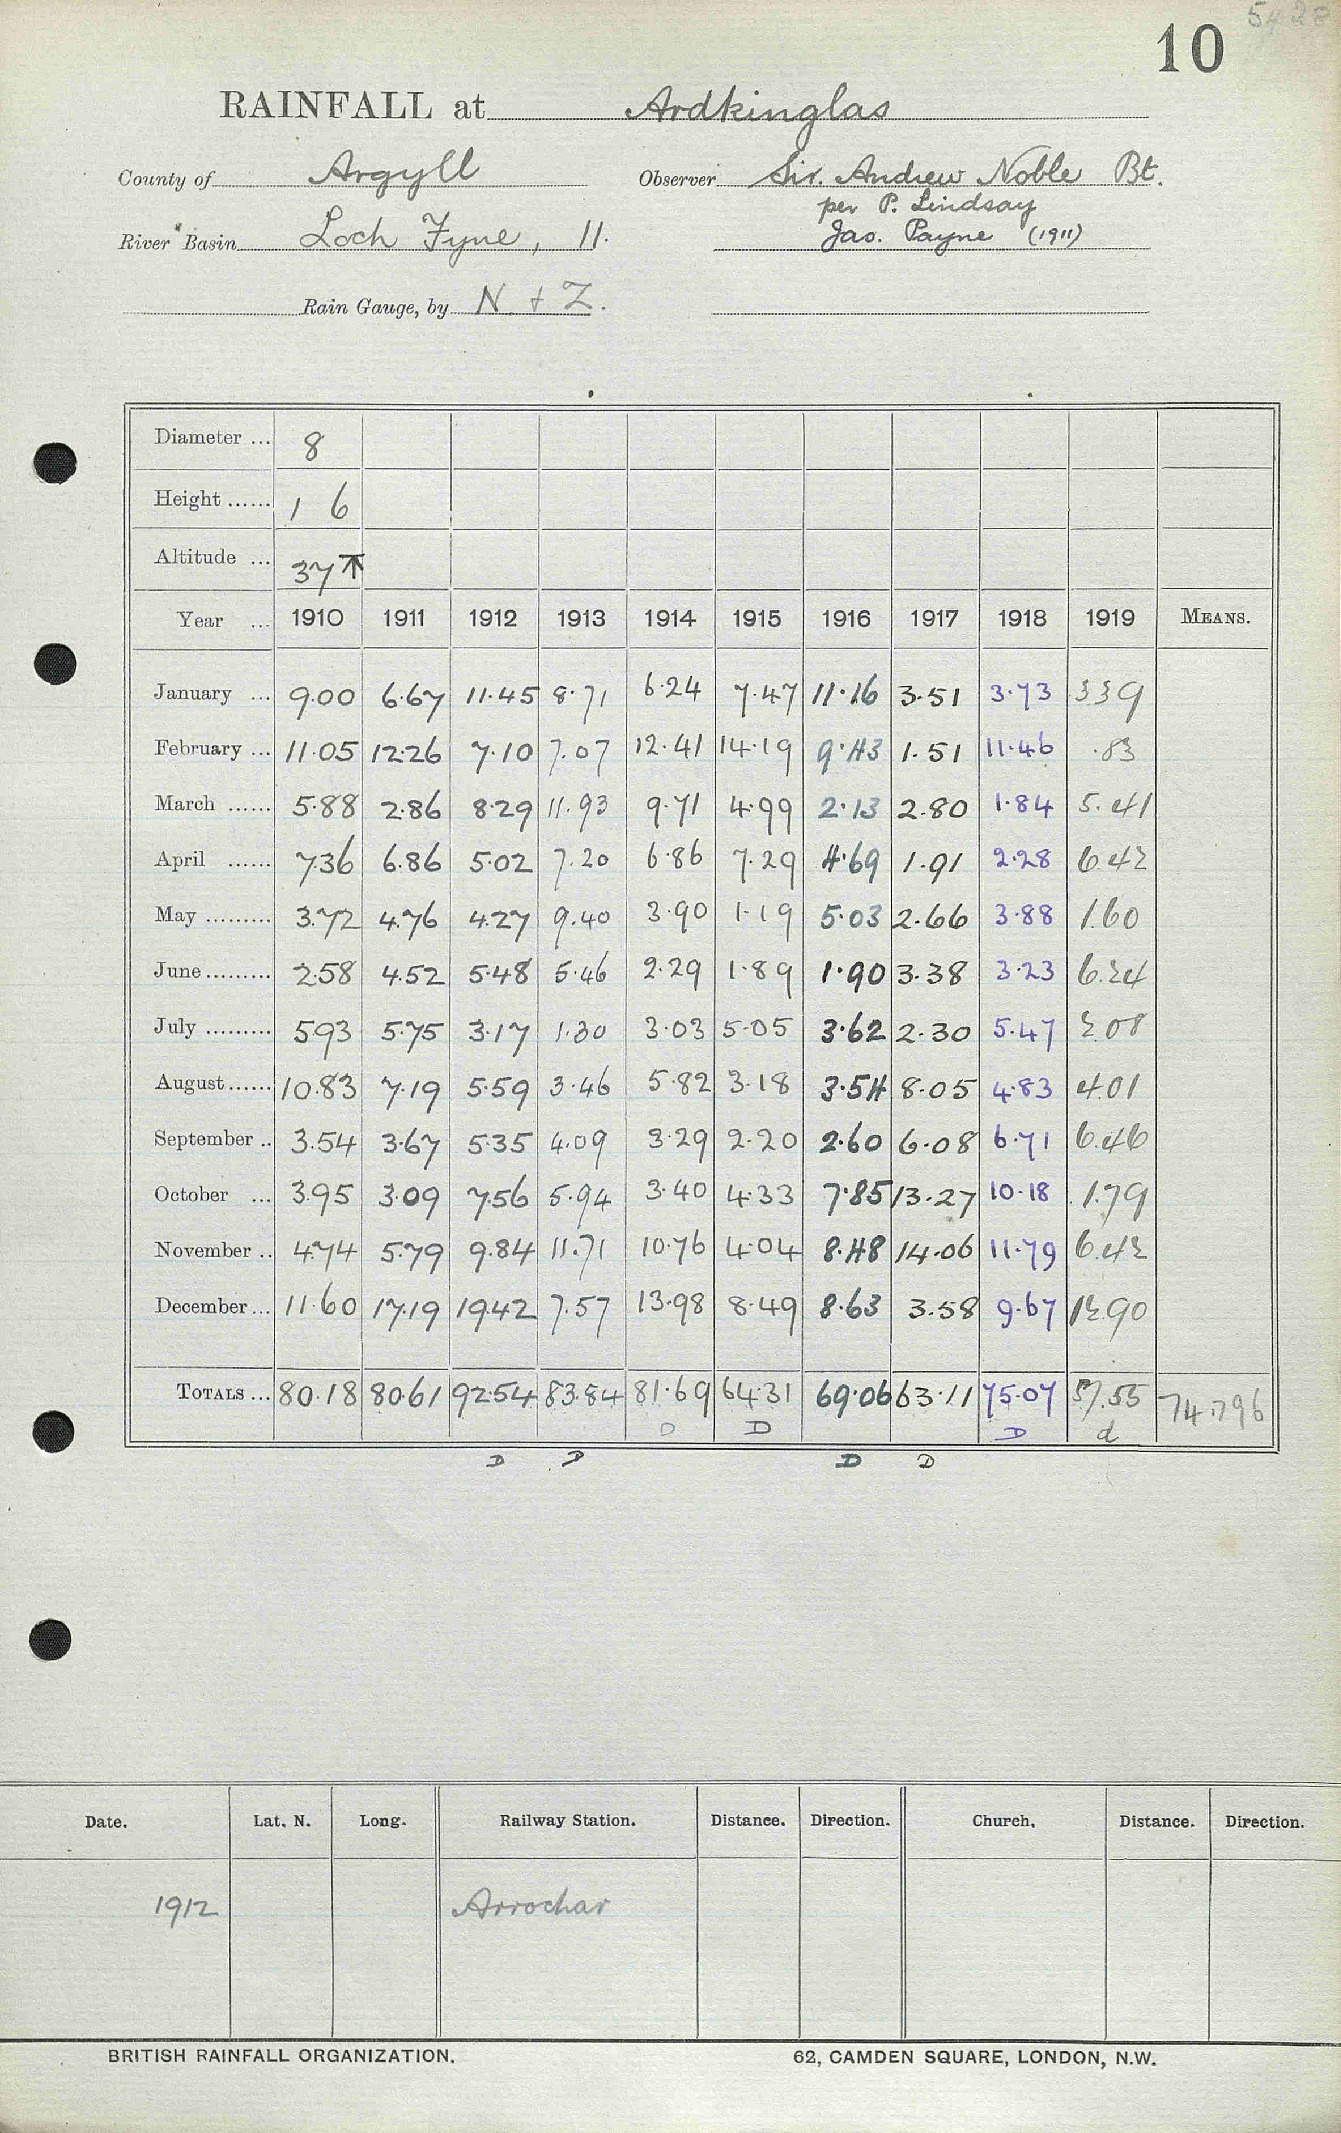 10
RAINFALL at Ardkinglas
County of Argyll Observer Sir. Andrew Noble Bt.
per P. Lindsay
River Basin Loch Fyne, 11. Jas. Payne (1911)
Rain Gauge, by N + Z.
Diameter ... 8
Height ...... 1 6
Altitude ... 37 ↑
Year ... 1910 1911 1912 1913 1914 1915 1916 1917 1918 1919 MEANS.
January ... 9.00 6.67 11.45 8.71 6.24 7.47 11.16 3.51 3.73 3 39
February ... 11.05 12.26 7.10 7.07 12.41 14.19 9.43 1.51 11.46 .83
March ...... 5.88 2.86 8.29 11.93 9.71 4.99 2.13 2.80 1.84 5.41
April ...... 7.36 6.86 5.02 7.20 6.86 7.29 4.69 1.91 2.28 6.42
May ......... 3.72 4.76 4.27 9.40 3.90 1.19 5.03 2.66 3.88 1.60
June ......... 2.58 4.52 5.48 5.46 2.29 1.89 1.90 3.38 3.23 6.24
July ......... 5.93 5.75 3.17 1.30 3.03 5.05 3.62 2.30 5.47 2.08
August ...... 10.83 7.19 5.59 3.46 5.82 3.18 3.54 8.05 4.83 4.01
September .. 3.54 3.67 5.35 4.09 3.29 2.20 2.60 6.08 6.71 6.46
October ... 3.95 3.09 7.56 5.94 3.40 4.33 7.85 13.27 10.18 1.79
November .. 4.74 5.79 9.84 11.71 10.76 4.04 8.48 14.06 11.79 6.42
December ... 11.60 17.19 19.42 7.57 13.98 8.49 8.63 3.58 9.67 12.90
TOTALS ... 80.18 80.61 92.54 83.84 81.69 64.31 69.06 63.11 75.07 57.55 74.796
D D D d
D D D D
Date. Lat. N. Long. Railway Station. Distance. Direction. Church. Distance. Direction.
1912 Arrochar
BRITISH RAINFALL ORGANIZATION. 62, CAMDEN SQUARE, LONDON, N.W.